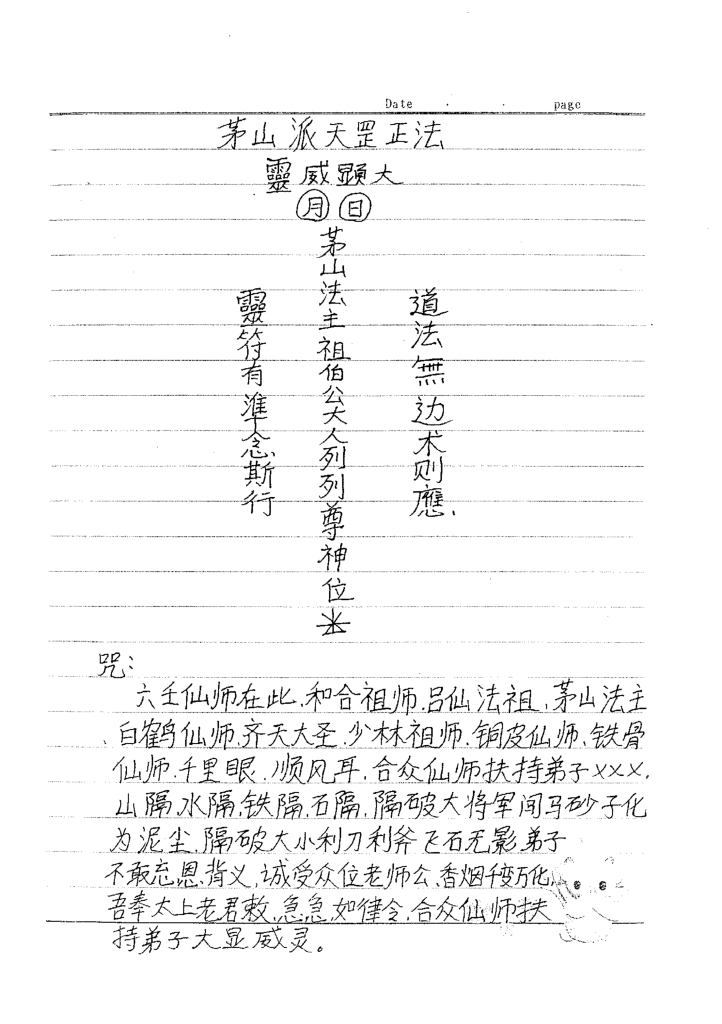 Date . . page
茅山派天罡正法
靈威顕大
月日
道法無边术则應、
茅山法主祖伯公大人列列尊神位
靈符有準念斯行
咒：
六壬仙师在此.和合祖师.吕仙法祖.茅山法主
、白鹤仙师.齐天大圣.少林祖师.铜皮仙师.铁骨
仙师.千里眼.顺风耳.合众仙师扶持弟子×××.
山隔.水隔.铁隔.石隔.隔破大将军间马砂子化
为泥尘.隔破大小利刀利斧飞石无影弟子
不敢忘恩背义.诚受众位老师公.香烟千变万化.
吾奉太上老君敕.急急如律令.合众仙师扶
持弟子大显威灵。